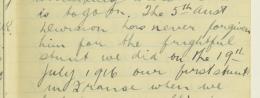 is to go on. The 5th Aust
Division has never forgiven
him for the frightful
stunt we did on the 19th
July 1916 our first stunt
in France when we